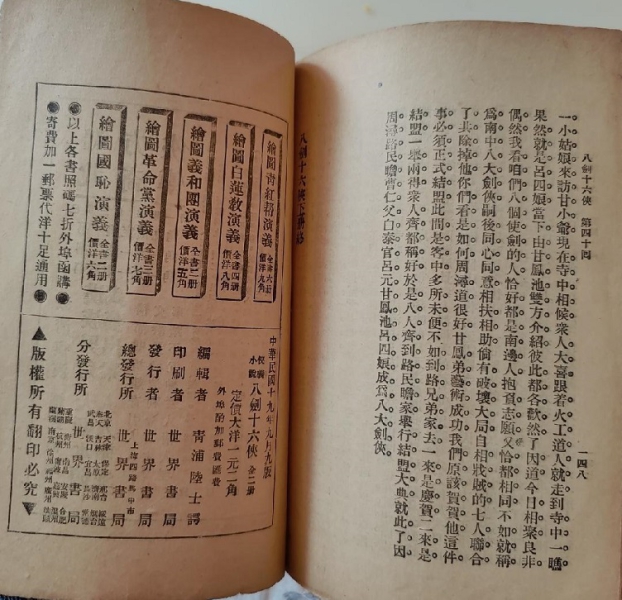 八劍十六俠　第四十回
一四八
一小姑娘來訪甘小爺現在寺中相候衆人大喜跟着火工道人就走到寺中一瞧
果然就是呂四娘當下由甘鳳池雙方介紹彼此都各歡然了因道今日相聚良非
偶然我看咱們八個使劍的人恰好都是南邊人抱負志願又恰都相同不如就稱
爲南中八大劍俠嗣後同心同意相扶相助倘有破壞大局自相戕賊的七人聯合
了共除掉他你們看是如何周潯道很好甘鳳弟藝術成功我們原該賀賀他這件
事必須正式結盟此間是客中多所未便不如到路兄弟家去一來是慶賀二來是
結盟一舉兩得衆人齊都稱好於是八人齊到路民瞻家舉行結盟大典就此了因
周潯路民瞻曹仁父白泰官呂元甘鳳池呂四娘成爲八大劍俠。
八劍十六俠
繪圖青紅幫演義　全書六册　價洋九角
繪圖白蓮教演義　全書四册　價洋八角
繪圖義和團演義　全書二册　價洋五角
繪圖革命黨演義　全書三册　價洋七角
繪圖國恥演義　全書二册　價洋六角
●以上各書照碼七折外埠函購●
●寄費加一郵票代洋十足通用●
中華民國十九年九月九版
小說　八劍十六俠　全二册
定價大洋一元二角
外埠酌加郵費匯費
編輯者　青浦陸士諤
印刷者　世界書局
發行者　世界書局
總發行所　上海四馬路中市　世界書局
分發行所　世界書局
▲版權所有翻印必究▼